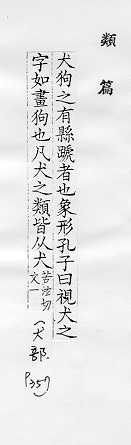 類篇
犬狗之有縣蹏者也象形孔子曰視犬之
字如畫狗也凡犬之類皆从犬苦泫切
文一
(犬部.
P357)